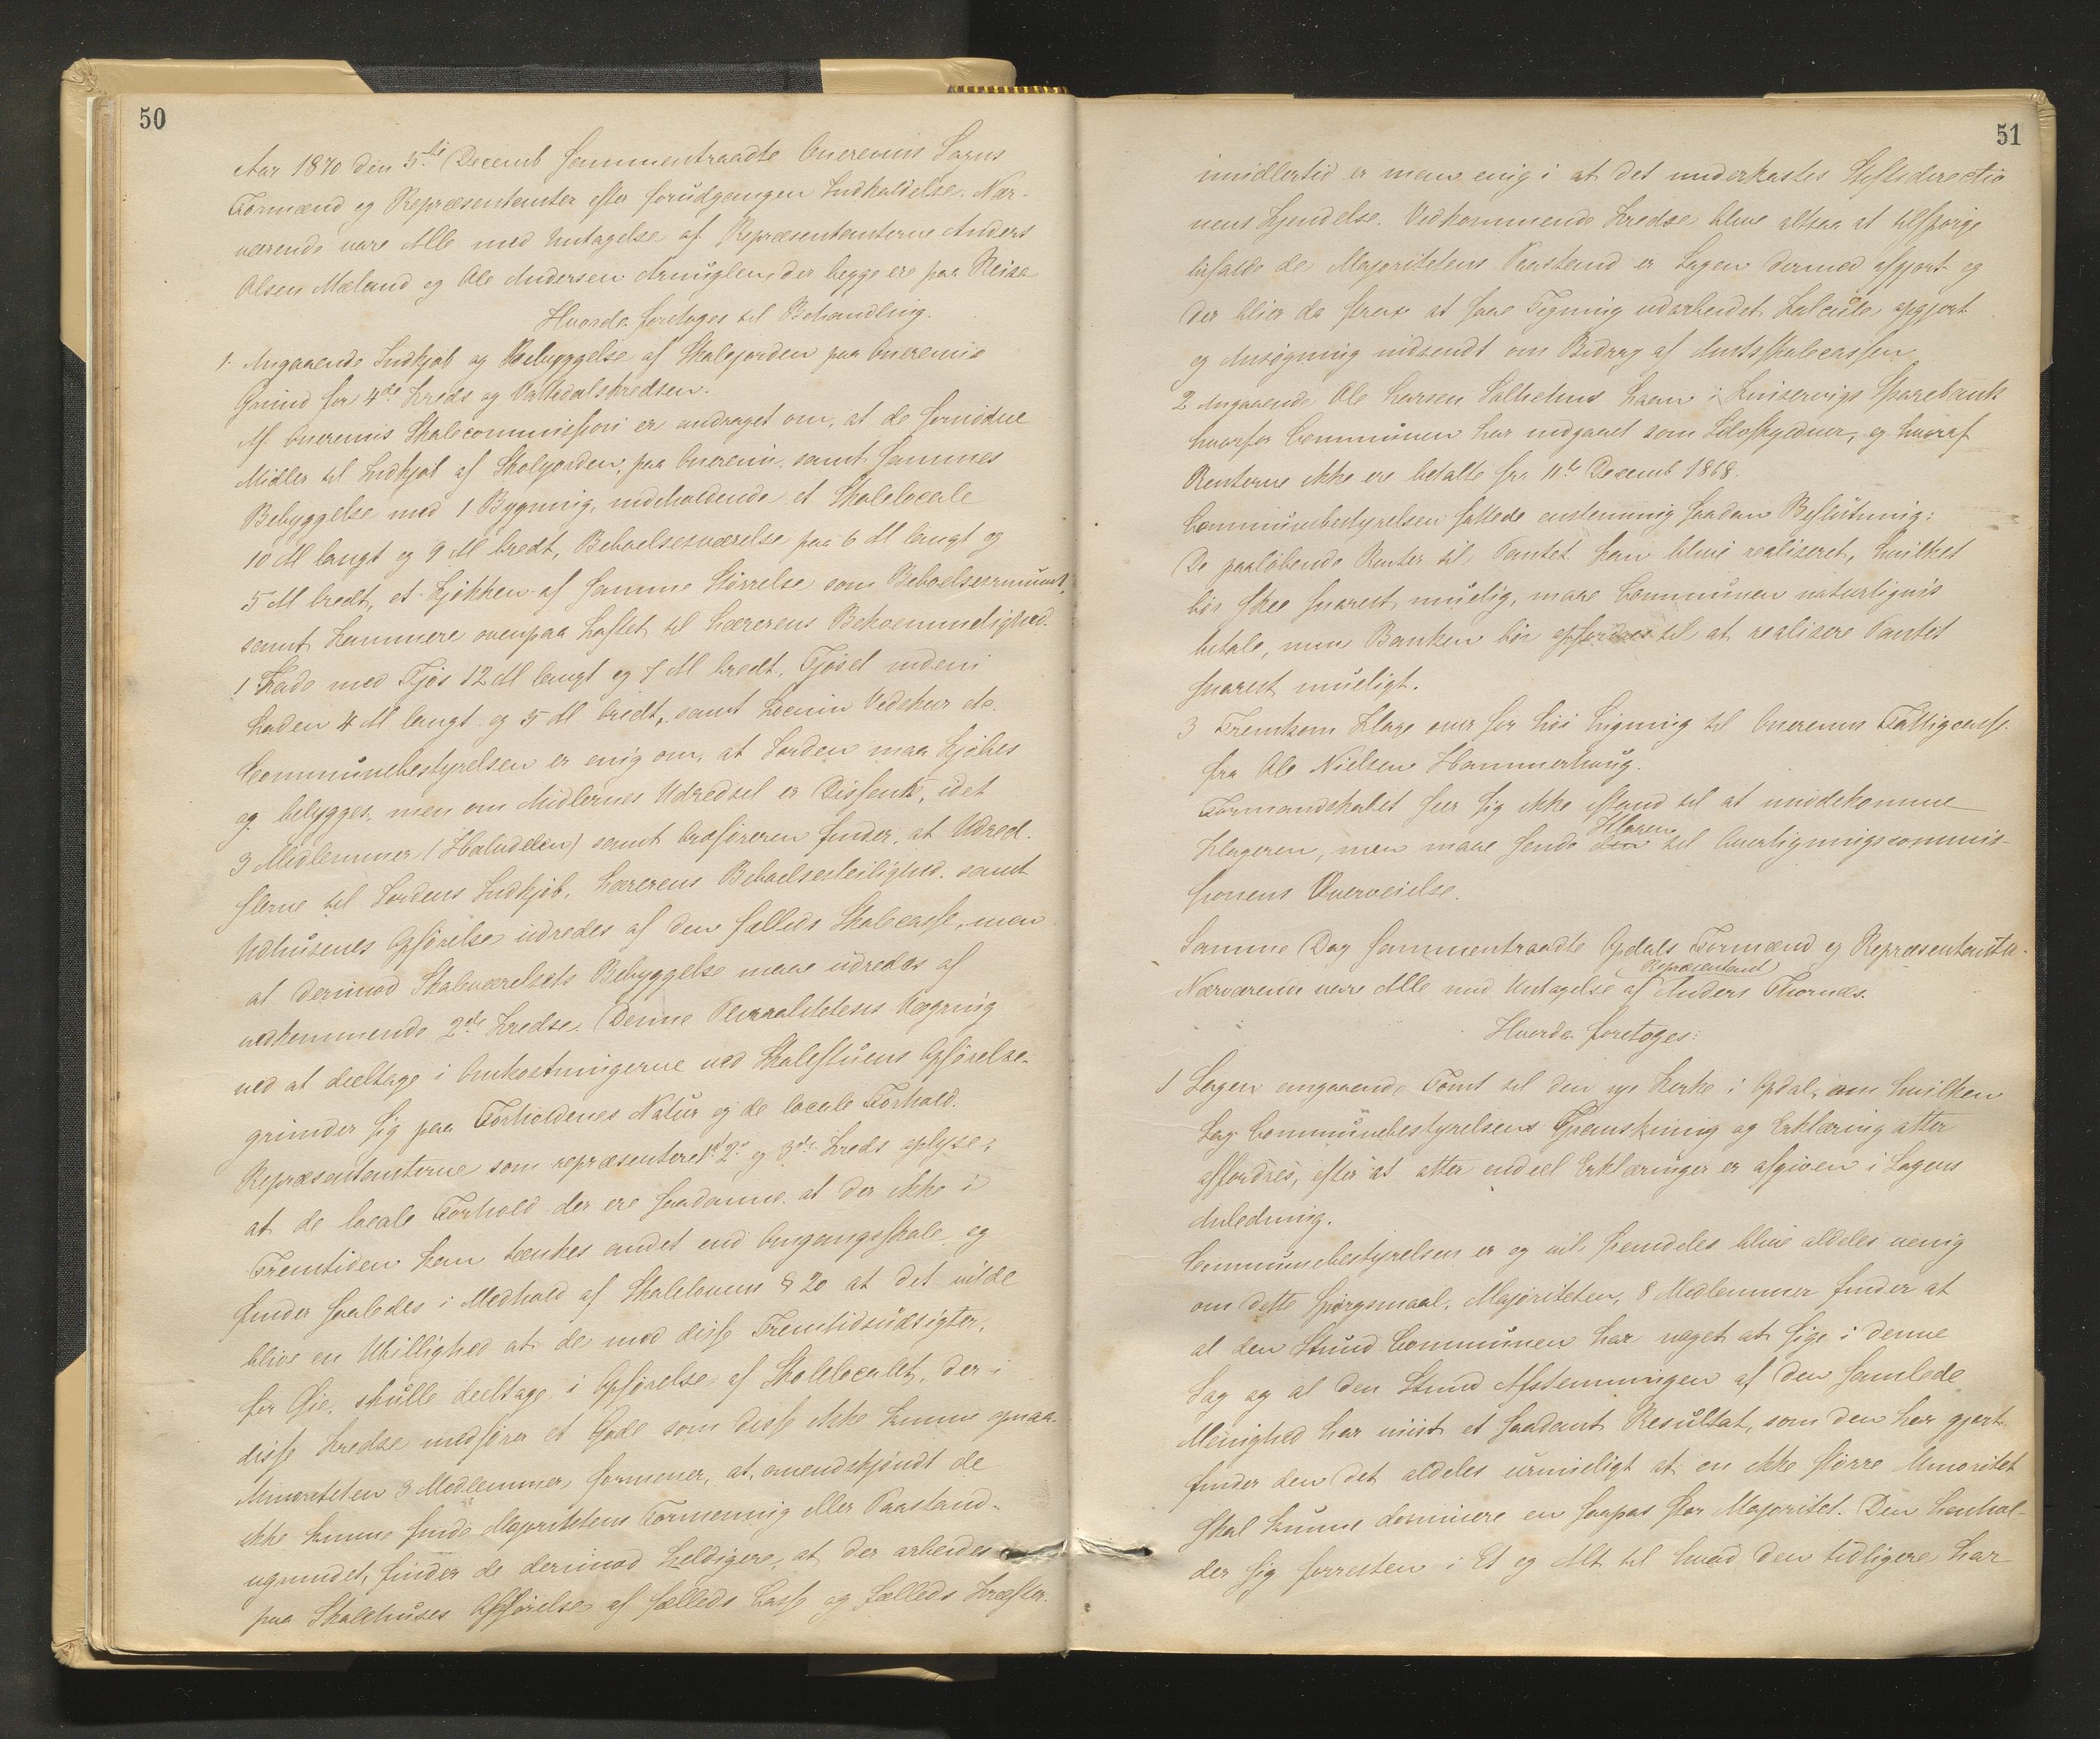 50
Aar 1870 den 5te Decemb sammentraadte Onereims Sogns
Formænd og Repræsentanter efter forudgangen Indkaldelse. Nær-
værende vare Alle med Untagelse af Repræsentanterne Anders
Olsen Mæland og Ole Andersen Arnuglen, der begge ere paa Reise
Hvorda foretoges til Behandling.
1. Angaaende Indkjøb og Bebyggelse af Skolejorden paa Onereims
Grund for 4de Kreds og Vattedalskredsen.
Af Onereims Skolecommission er andraget om, at de fornødne
Midler til Indkjøb af Skolejorden, paa Onereim, samt sammes
Bebyggelse med 1 Bygning, indeholdende et Skolelocale
10 Al langt og 9 Al bredt, Beboelsesværelse paa 6 Al langt og
5 Al bredt, et Kjøkken af samme Størrelse som Beboelsesrummet,
samt Kammere ovenpaa Loftet til Lærerens Bekvemmelighed.
1 Lade med Fjøs 12 Al langt og 7 Al bredt, Fjøset indeni
Laden 4 Al langt og 5 Al bredt, samt Vedskur etc.
Communebestyrelsen er enig om, at Jorden maa kjøbes
og bebygges, men om Midlernes Udredsel er Dissents, idet
3 Medlemmer (Halvdelen) samt Ordføreren finder, at Udred-
slerne til Jordens Indkjøb, Lærerens Beboelsesleilighed, samt
Udhusenes Opførelse udredes af den fælleds Skolecasse, men
at derimod Skoleværelsets Bebyggelse maae udredes af
vedkommende 2de Kredse. Denne Pluralitetens Vægring
ved at deeltage i Omkostningerne ved Skolestuens Opførelse
grunder sig paa Forholdenes Natur og de locale Forhold.
Repræsentanterne som repræsentere 1st 2de og 3die Kreds oplyse,
at de locale Forhold der ere saadanne at der ikke i
Fremtiden kan tænkes andet end Omgangsskole og
finder saaledes i Medhold af Skolelovens § 20 at det vilde
blive en Ubillighed at de med disse Fremtidsudsigter,
for Øie, skulle deeltage i Opførelse af Skolelocalet, der i
disse Kredse medfører et Gode som disse ikke kunne opnaa.
Minoriteten 3 Medlemmer, formener, at, omendskjøndt de
ikke kunne finde Majoritetens Formening eller Paastand
ugrundet, finder de derimod heldigere, at der arbeides
paa Skolehuses Opførelse af fælleds Casse og fælleds Kræfter.
51
imidlertid er man enig i at det underkastes Stiftsdirectio
nens Kjendelse. Vedkommende Kredse blive altsaa at tilspørge
bifalde de Majoritetens Paastand er Sagen dermed afgjort og
der blier da strax at faae Tegning udarbeidet, Kalcule, opgjort
og Ansøgning indsendt om Bidrag af Amtsskolecassen
2 Angaaende Ole Larsen Laan i Kinservigs Sparebank
hvorfor Communen har indgaaet som Selvskyldner, og hvoraf
Renterne ikke ere betalte fra 11te Decemb 1868.
Communebestyrelsen fattede enstemmig saadan Beslutning:
De paaløbende Renter til Pantet kan blive realiseret, hvilket
bør skee snarest muelig, maae Communen naturligviis
betale, men Banken bør opfordres til at realisere Pantet
snarest mueligt.
3 Fremkom Klage over for høi Ligning til Onereims Fattigcasse
fra Ole Nielsen Hammerhaug.
Formandskabet seer sig ikke istand til at imødekomme
Klagen
Klageren, men maae sende den til Overligningscommis-
sionens Overveielse.
Samme Dag sammentraadte Opdals Formænd og Repræsentanter.
Repræsentant
Nærværende vare Alle med Untagelse af Anders Thornæs.
Hvorda foretoges:
1 Sagen angaaende Tomt til den nye Kirke i Opdal, om hvilken
Sag Communebestyrelsens Granskning og Erklæring atter
affordres, efter at atter endeel Erklæringer er afgiven i Sagens
Anledning.
Communebestyrelsen er og vil fremdeles blive aldeles uenig
om dette Spørgsmaal, Majoriteten, 8 Medlemmer finder at
al den Stund Communen har noget at sige i denne
Sag og al den Stund Afstemningen af den samlede
Menighed har viist et saadant Resultat, som den har gjort
finder den det aldeles urimeligt at en ikke større Minoritet
skal kunne dominere en saapas stor Majoritet. Den henhol-
der sig forresten i Et og Alt til hvad den tidligere har